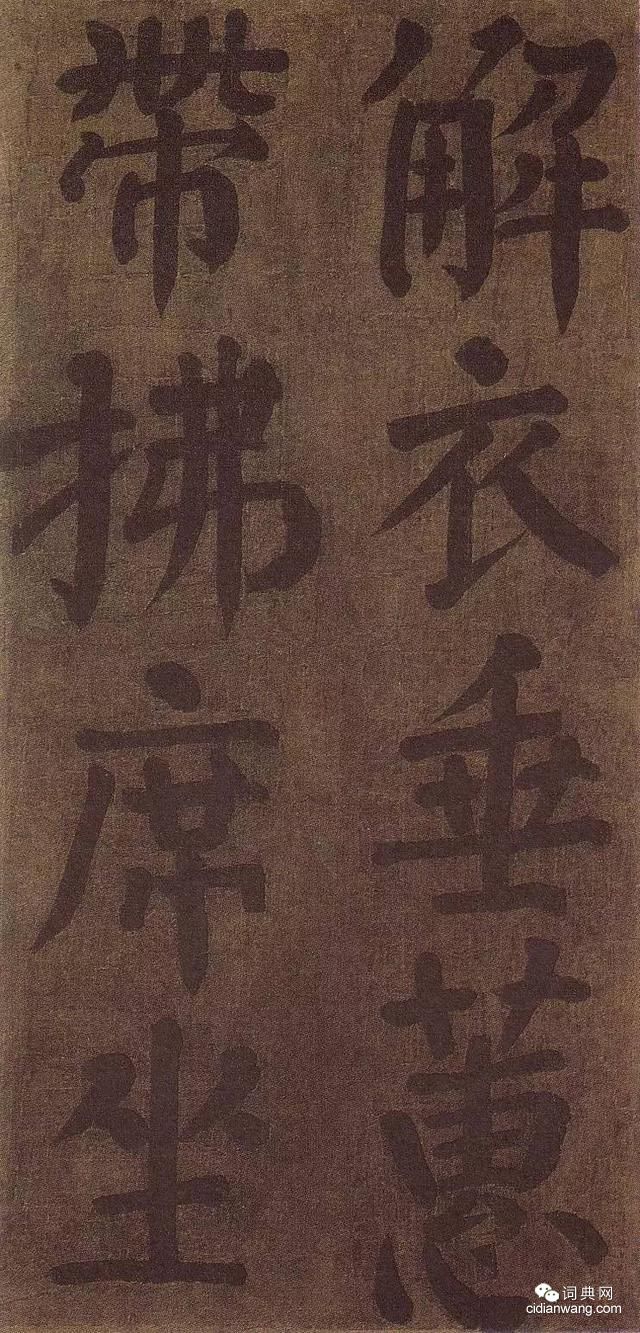 解衣垂蕙
帶拂席坐
词典网
cidianwang.com